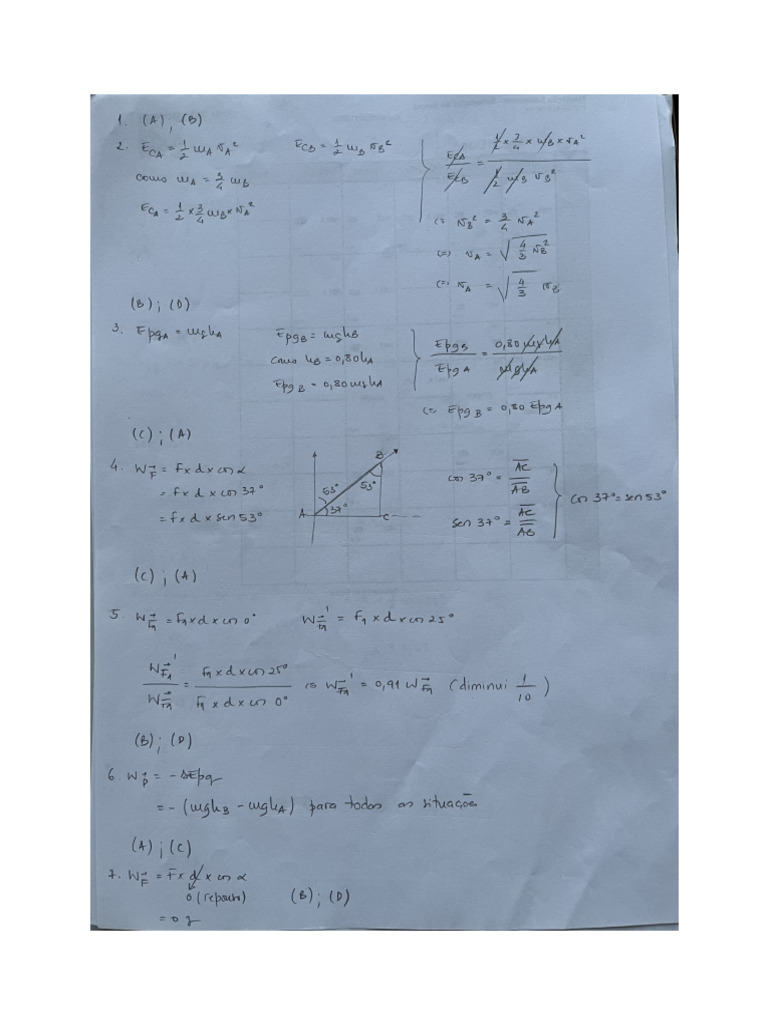 1. (A) ; (B)
2. EcA = 1/2 mA vA²
EcB = 1/2 mB vB²
EcA/EcB = (1/2 × 3/4 × mB × vA²)/(1/2 mB vB²)
como mA = 3/4 mB
EcA = 1/2 × 3/4 mB × vA²
(=) vB² = 3/4 vA²
(=) vA = √(4/3 vB²)
(=) vA = √(4/3) vB
(B) ; (D)
3. EpgA = mghA
EpgB = mghB
como hB = 0,80hA
EpgB = 0,80 mghA
EpgB/EpgA = 0,80 mghA/mghA
(=) EpgB = 0,80 EpgA
(C) ; (A)
4. WF = F × d × cos α
= F × d × cos 37°
= F × d × sen 53°
B
53°
53°
A
37°
C
cos 37° = AC/AB
sen 37° = AC/AB
cos 37° = sen 53°
(C) ; (A)
5. WF1 = F1 × d × cos 0°
WF1' = F1 × d × cos 25°
WF1'/WF1 = (F1 × d × cos 25°)/(F1 × d × cos 0°) (=) WF1' = 0,91 WF1 (diminui 1/10)
(B) ; (D)
6. WP = - ΔEpg
= - (mghB - mghA) para todas as situações
(A) ; (C)
7. WF = F × d × cos α
0 (repouso)
(B) ; (D)
= 0 J